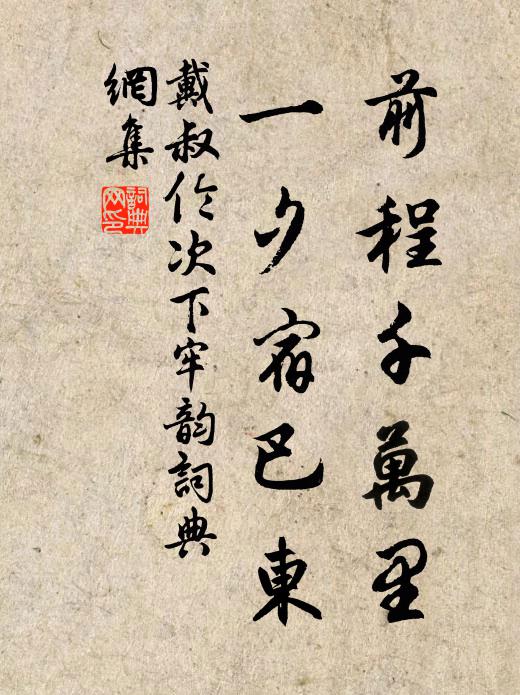 前程千萬里
一夕宿巴東
戴叔伦次下牢韵詞典
網集
詞典
网印